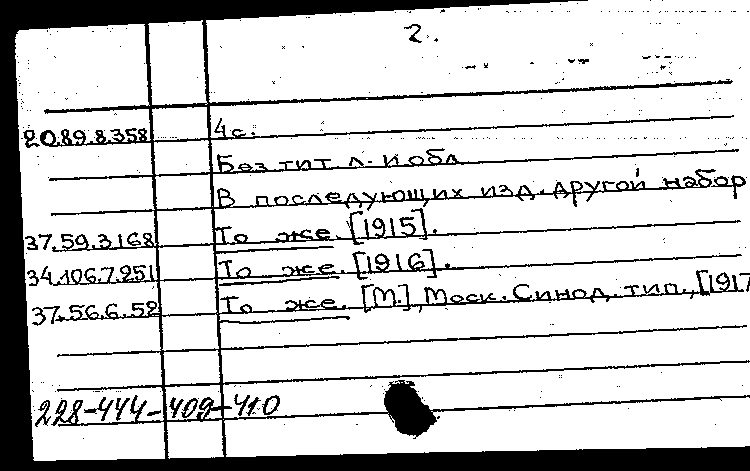 2.
20.89.8.358 4с.
Без тит л. и обл
В последующих изд. другой набор
37.59.3.168 То же. [1915].
34.106.7.251 То же. [1916].
37.56.6.52 То же. [М.], Моск. Синод. тип., [1917
228-444-409-410